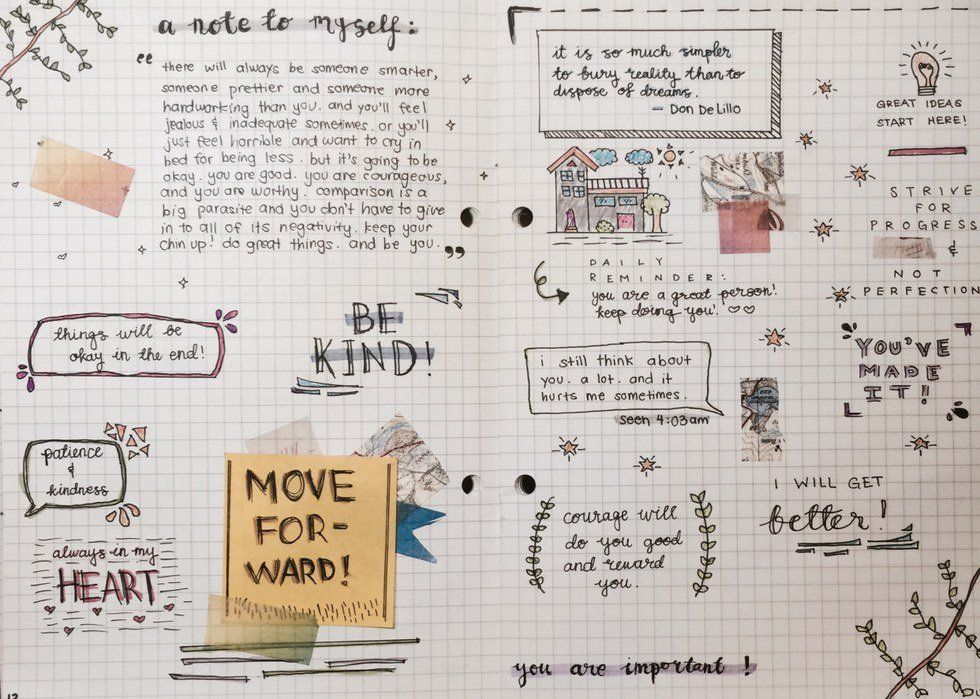 a note to myself:
“ there will always be someone smarter,
someone prettier and someone more
hardworking than you. and you'll feel
jealous & inadequate sometimes. or you'll
just feel horrible and want to cry in
bed for being less. but it's going to be
okay. you are good. you are courageous,
and you are worthy. comparison is a
big parasite and you don't have to give
in to all of its negativity. keep your
chin up! do great things. and be you. ”
things will be
okay in the end!
BE
KIND!
patience
&
kindness
always in my
HEART
MOVE
FOR-
WARD!
it is so much simpler
to bury reality than to
dispose of dreams.
— Don DeLillo
GREAT IDEAS
START HERE!
STRIVE
FOR
PROGRESS
&
NOT
PERFECTION
DAILY
REMINDER:
you are a great person!
keep doing you! ♡♡
i still think about
you. a lot. and it
hurts me sometimes.
seen 4:03am
YOU'VE
MADE
IT!
I WILL GET
better!
courage will
do you good
and reward
you.
you are important!